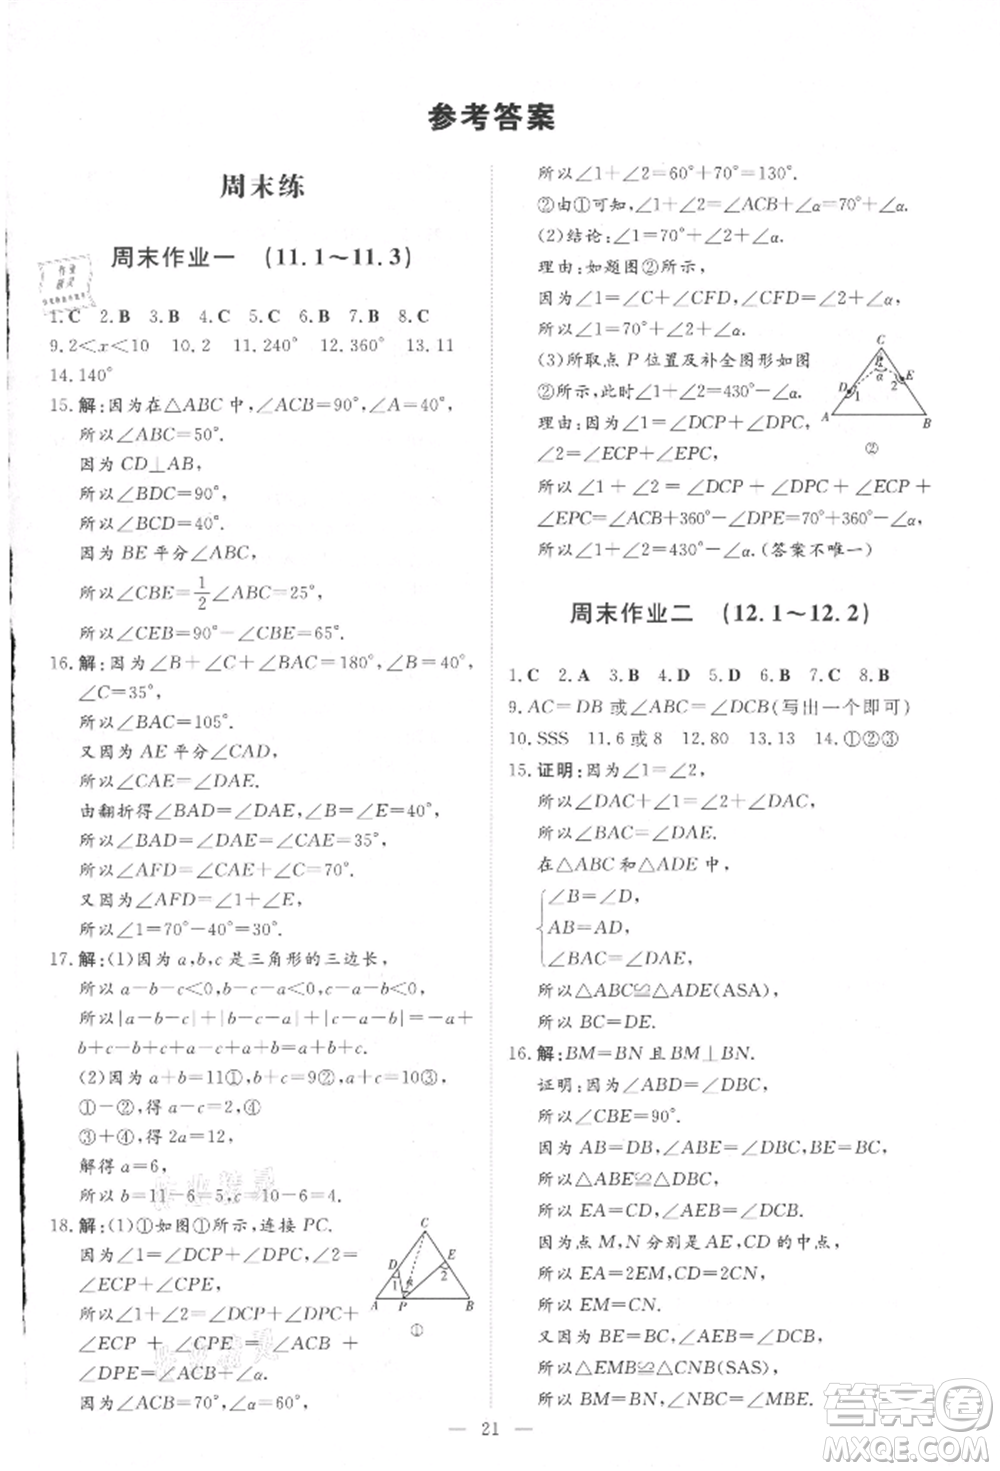 参考答案
周末练
周末作业一 (11.1～11.3)
1.C 2.B 3.B 4.C 5.C 6.B 7.B 8.C
9.2<x<10 10.2 11.240° 12.360° 13.11
14.140°
15.解:因为在△ABC中,∠ACB=90°,∠A=40°,
所以∠ABC=50°.
因为CD⊥AB,
所以∠BDC=90°,
所以∠BCD=40°.
因为BE平分∠ABC,
所以∠CBE=1/2∠ABC=25°,
所以∠CEB=90°－∠CBE=65°.
16.解:因为∠B+∠C+∠BAC=180°,∠B=40°,
∠C=35°,
所以∠BAC=105°.
又因为AE平分∠CAD,
所以∠CAE=∠DAE.
由翻折得∠BAD=∠DAE,
所以∠BAD=∠DAE=∠CAE=35°,
所以∠AFD=∠CAE+∠C=70°.
又因为∠AFD=∠1+∠E,
所以∠1=70°－40°=30°.
17.解:(1)因为a,b,c是三角形的三边长,
所以a－b－c<0,b－c－a<0,c－a－b<0,
所以|a－b－c|+|b－c－a|+|c－a－b|=－a+
b+c－b+c+a－c+a+b=a+b+c.
(2)因为a+b=11①,b+c=9②,a+c=10③,
①－②,得a－c=2,④
③+④,得2a=12,
解得a=6,
所以b=11－6=5,c=10－6=4.
18.解:(1)①如图①所示,连接PC.
因为∠1=∠DCP+∠DPC,∠2=
∠ECP+∠CPE,
所以∠1+∠2=∠DCP+∠DPC+
∠ECP+∠CPE=∠ACB+
∠DPE=∠ACB+∠α.
因为∠ACB=70°,∠α=60°,
C
D
E
1
2
α
A
P
B
①
所以∠1+∠2=60°+70°=130°.
②由①可知,∠1+∠2=∠ACB+∠α=70°+∠α.
(2)结论:∠1=70°+∠2+∠α.
理由:如题图②所示,
因为∠1=∠C+∠CFD,∠CFD=∠2+∠α,
所以∠1=70°+∠2+∠α.
(3)所取点P位置及补全图形如图
②所示,此时∠1+∠2=430°－∠α.
理由:因为∠1=∠DCP+∠DPC,
∠2=∠ECP+∠EPC,
所以∠1+∠2=∠DCP+∠DPC+∠ECP+
∠EPC=∠ACB+360°－∠DPE=70°+360°－∠α,
所以∠1+∠2=430°－∠α.(答案不唯一)
C
P
D
α
E
1
2
A
B
②
周末作业二 (12.1～12.2)
1.C 2.A 3.B 4.D 5.D 6.B 7.C 8.B
9.AC=DB或∠ABC=∠DCB(写出一个即可)
10.SSS 11.6或8 12.80 13.13 14.①②③
15.证明:因为∠1=∠2,
所以∠DAC+∠1=∠2+∠DAC,
所以∠BAC=∠DAE.
在△ABC和△ADE中,
∠B=∠D,
AB=AD,
∠BAC=∠DAE,
所以△ABC≌△ADE(ASA),
所以BC=DE.
16.解:BM=BN且BM⊥BN.
证明:因为∠ABE=∠DBC,
所以∠CBE=90°.
因为AB=DB,∠ABE=∠DBC,BE=BC,
所以△ABE≌△DBC,
所以EA=CD,∠AEB=∠BCD.
因为点M,N分别为AE,CD的中点,
所以EA=2EM,CD=2CN,
所以EM=CN.
又因为EB=CB,∠AEB=∠BCD,
所以△EMB≌△CNB(SAS),
所以BM=BN,∠NBC=∠MBE.
21
答案卷
MXQE.COM